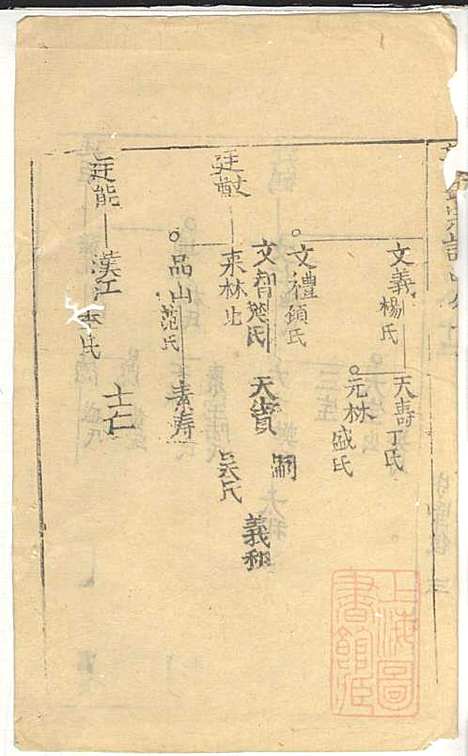 文義
楊氏
天壽
丁氏
元林
盛氏
文禮
顧氏
文智
天貴
嗣
吳氏
義和
來林
廷猷
品山
范氏
素壽
廷能
漢江
李氏
士仁
上海圖
書館藏